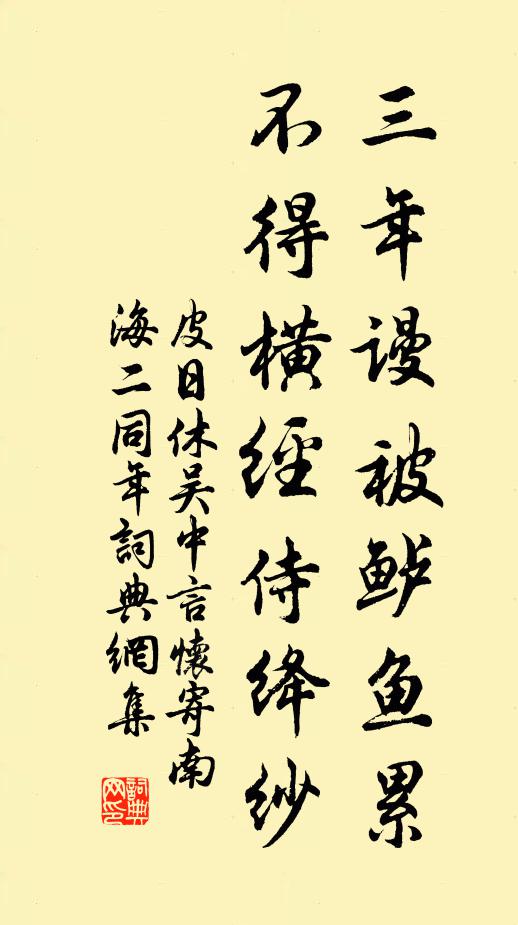 三年谩被鲈鱼累
不得横经侍绛纱
皮日休吴中言懷寄南
海二同年詞典網集
詞典
网印